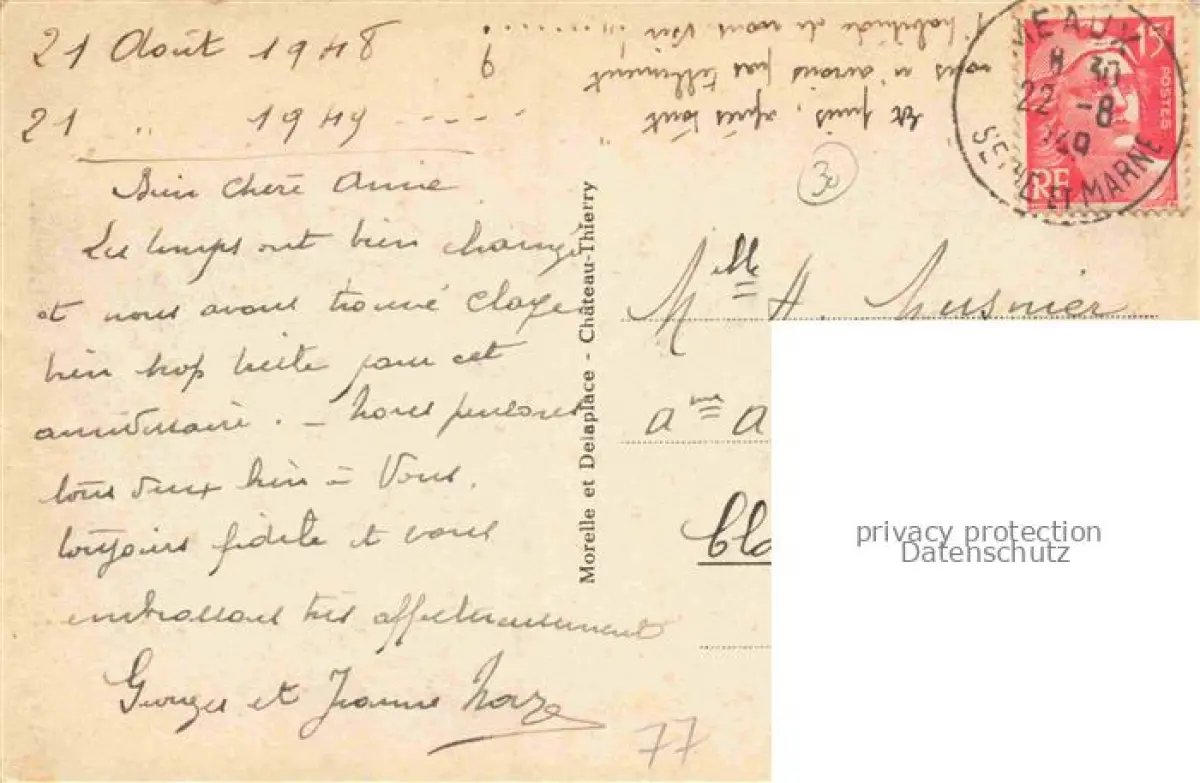 21 Août 1948
21 " 1949 -----
Bien chère Anne
Les temps ont bien changé
et nous avons trouvé Claye
bien trop triste pour cet
anniversaire. - Nous pensons
tous deux bien à Vous.
toujours fidèle et vous
embrassons très affectueusement
Georges et Jeanne
77
Et puis, après tout
nous n'avons pas tellement
l'habitude de nous voir !!! ........ ?
Morelle et Delaplace - Château-Thierry
30
MEAUX
8 30
22 -8
1949
SEINE ET MARNE
15
POSTES
RF
Mlle H. Musnier
Cla
privacy protection
Datenschutz